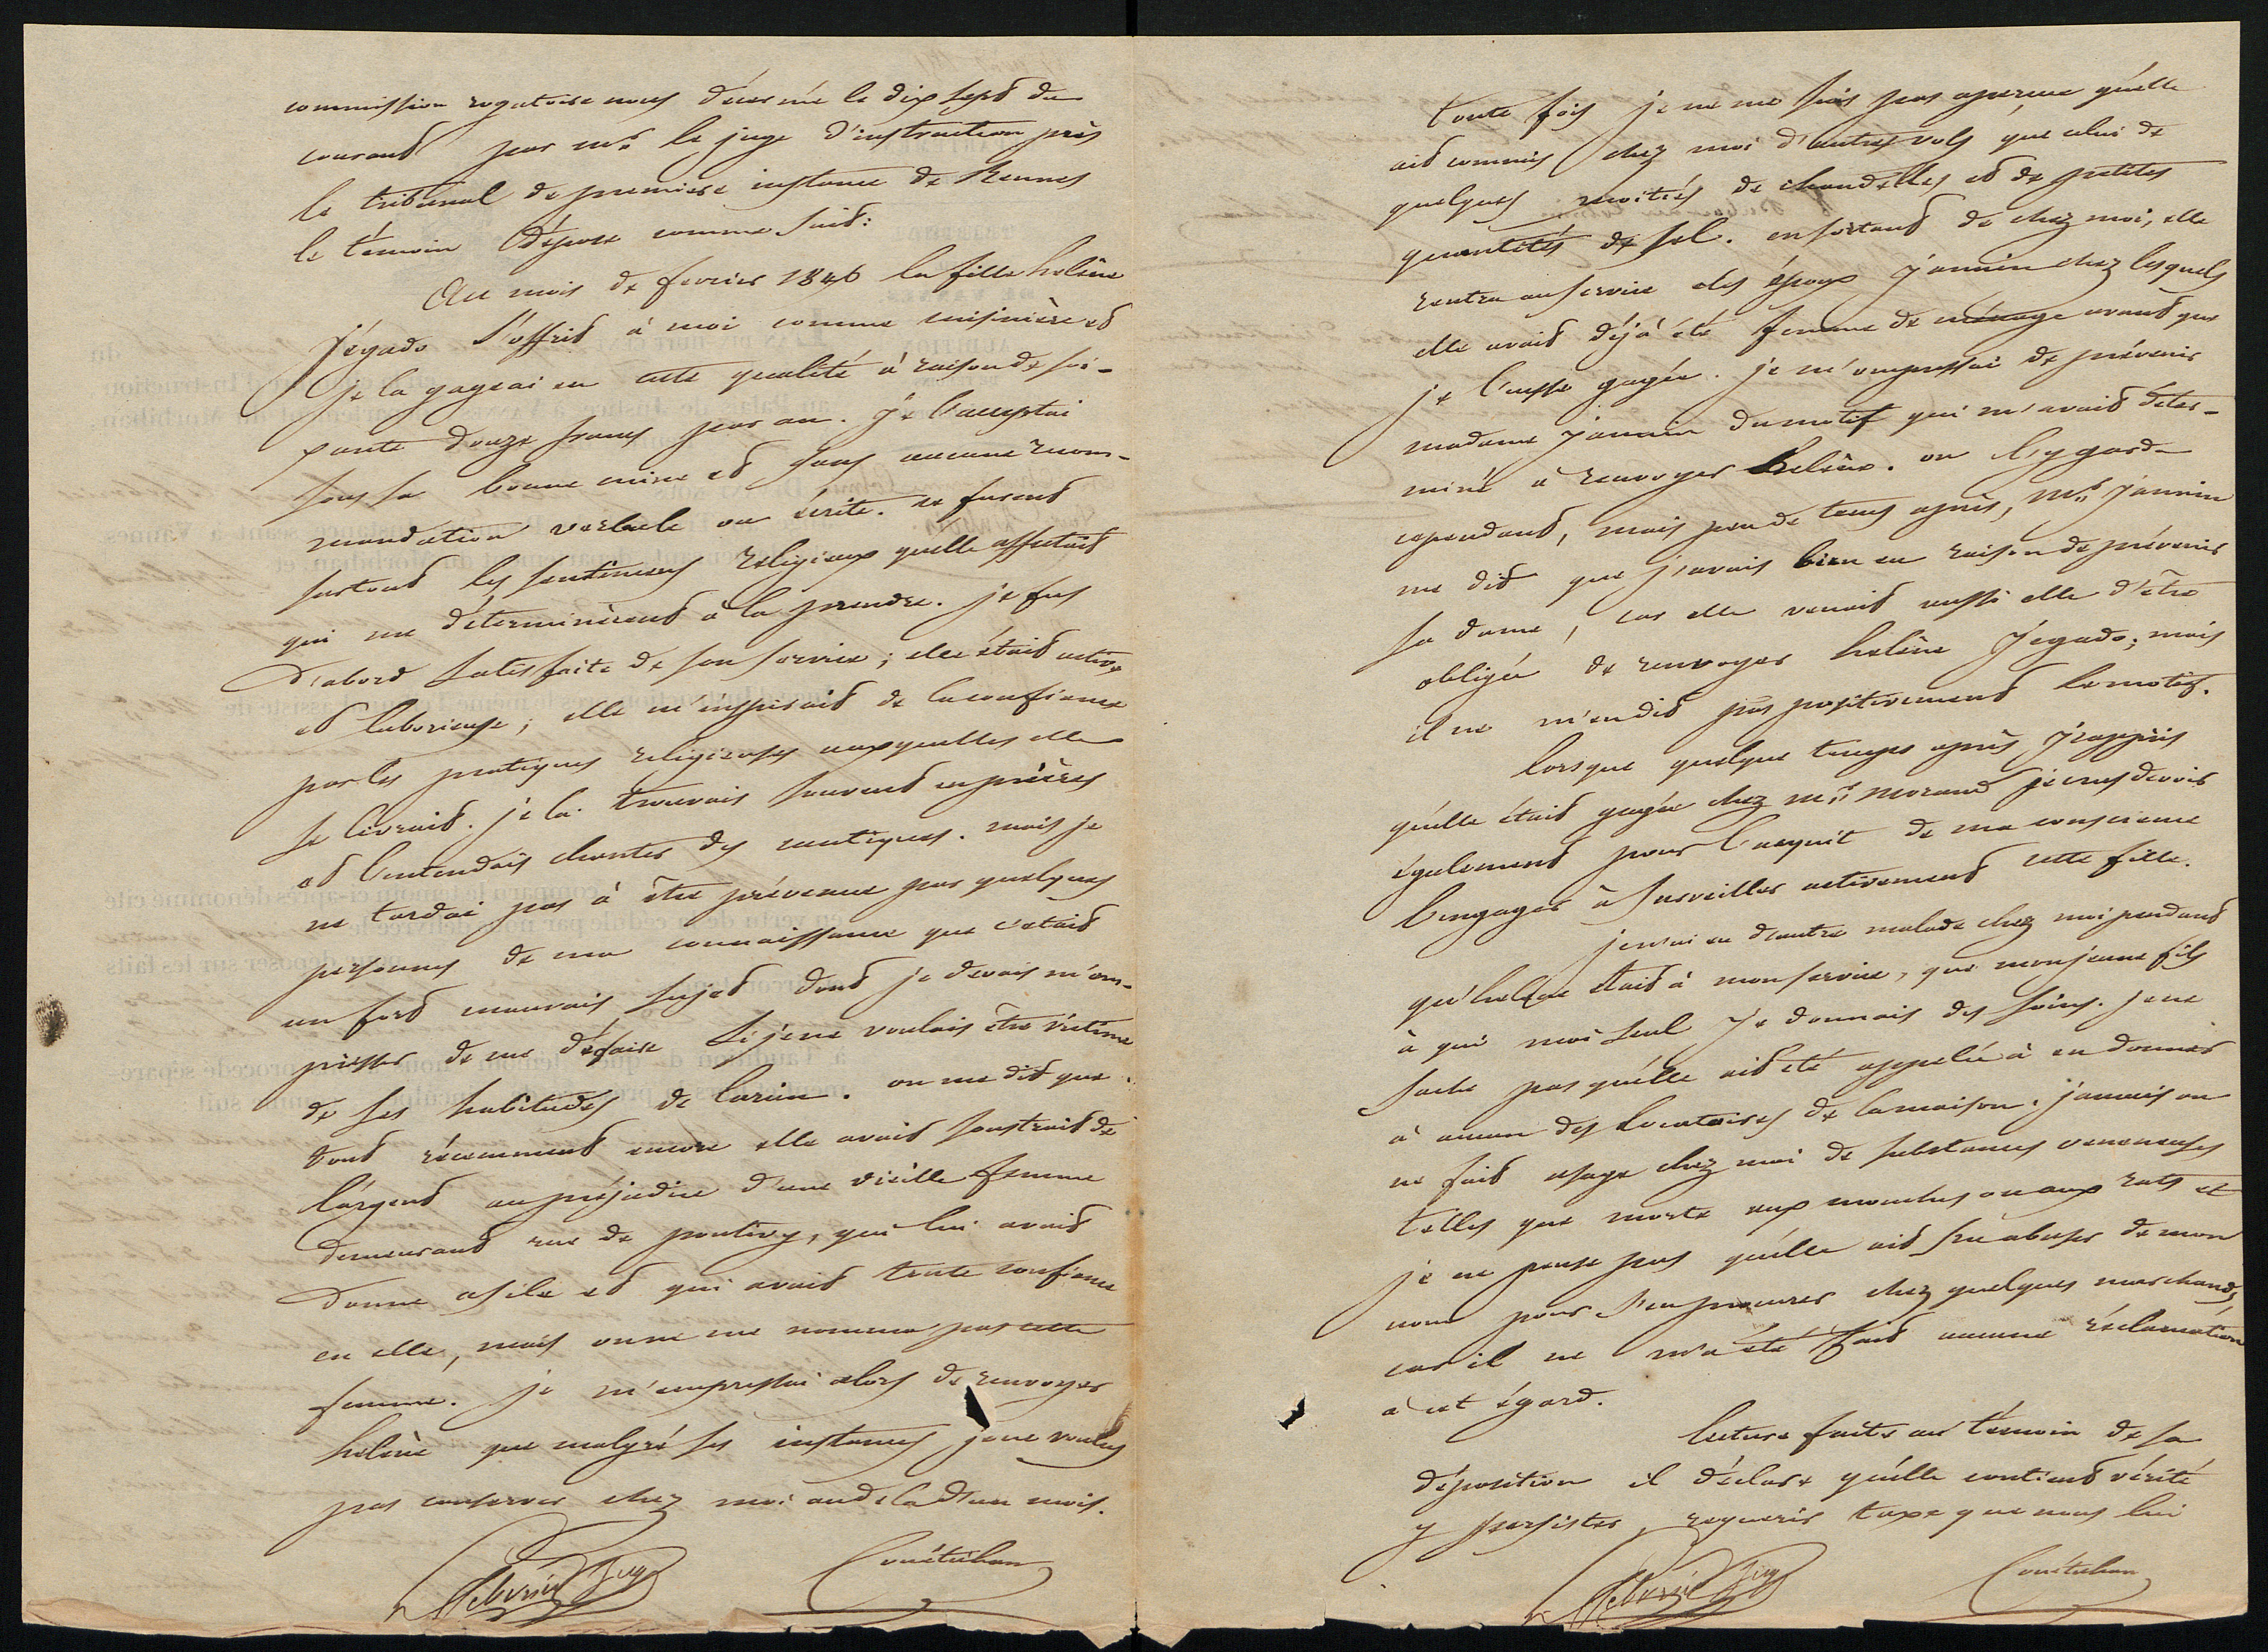 commission rogatoire nous décernée le dix sept du
courant par mr le juge d'instruction près
le tribunal de premiere instance de Rennes
le témoin dépose comme suit:
Au mois de fevrier 1846 la fille helène
Jégado s'offrit à moi comme cuisinière et
je la gageai en cette qualité à raison de soi-
xante douze francs par an. Je l'acceptai
sous sa bonne mine et sans aucune recom-
mandation verbale ou écrite. ce furent
surtout les sentimens religieux quelle affectait
qui me déterminèrent à la prendre. je fus
d'abord satisfaite de son service; elle était active
et laborieuse; elle m'inspirait de la confiance
par les pratiques religieuses auxquelles elle
se livrait. je la trouvais souvent en prières
et l'entendais chanter des cantiques. mais je
ne tardai pas à être prévenue par quelques
personnes de ma connaissance que c'etait
un fort mauvais sujet dont je devais m'em-
presser de me défaire si je ne voulais être victime
de ses habitudes de larcin. on me dit que
tout récemment encore elle avait soustrait de
l'argent au préjudice d'une vieille femme
demeurant rue de pontivy, qui lui avait
donné asile et qui avait toute confiance
en elle, mais on ne me nomma pas cette
femme. je m'empressai alors de renvoyer
helène que malgré ses instances je ne voulus
pas conserver chez moi audela d'un mois.
Juge
toute fois je ne me suis pas aperçue qu'elle
ait commis chez moi d'autres vols que celui de
quelques moitiés de chandelles et de petites
quantités de sel. en sortant de chez moi, elle
rentra au service des époux jannin chez lesquels
elle avait déjà été femme de ménage avant que
je l'eusse gagée. je m'empressai de prévenir
madame jannin du motif qui m'avait déter-
miné à renvoyer helène. on l'y garda
cependant, mais peu de tems après, mr jannin
me dit que j'avais bien eu raison de prévenir
sa dame, car elle venait aussi elle d'être
obligée de renvoyer helène Jegado; mais
il ne m'en dit pas positivement le motif.
lorsque quelque temps après j'appris
qu'elle était gagée chez mr morand je crus devoir
également pour l'acquit de ma conscience
l'engager à surveiller activement cette fille.
je n'ai eu d'autre malade chez moi pendant
qu'helène était à mon service, que mon jeune fils
à qui moi seul je donnais des soins. je ne
sache pas qu'elle ait été appelée à en donner
à aucun des locataires de la maison. jamais on
ne fait usage chez moi de substances veneneuses
telles que morte aux mouches ou aux rats et
je ne pense pas qu'elle ait pu abuser de mon
nom pour s'en procurer chez quelques marchands,
car il ne m'a été fait aucune réclamation
à cet égard.
lecture faite au témoin de sa
déposition il déclare qu'elle contient vérité
y persister, requerir taxe que nous lui
Juge